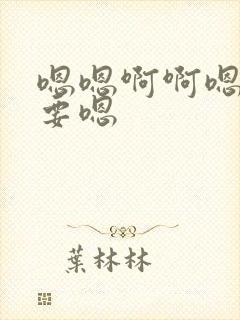 嗯嗯啊啊嗯
要嗯
葉林林